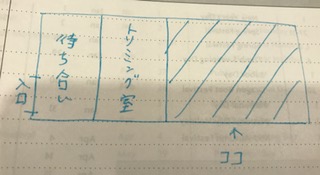 入口
待ち合い
トリミング室
ココ